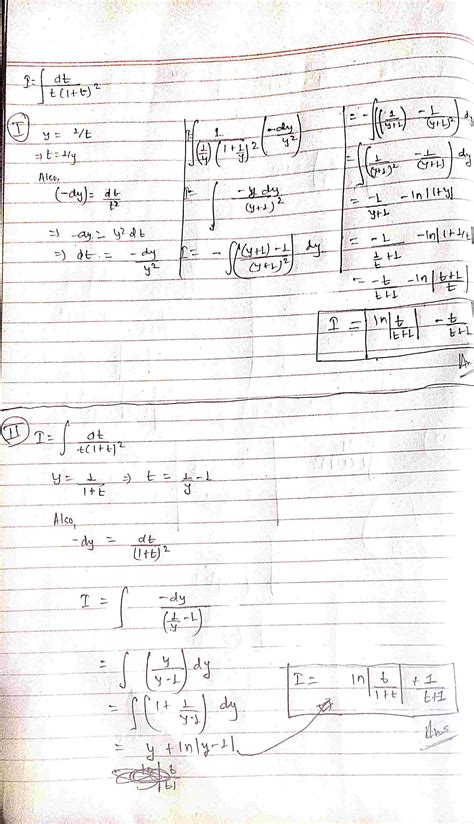 I = ∫ dt / t(1+t)²
(I) y = 1/t
⇒ t = 1/y
Also,
(-dy) = dt / t²
⇒ -dy = y² dt
⇒ dt = -dy / y²
I = ∫ 1 / (1/y)(1 + 1/y)² (-dy / y²)
I = ∫ -y dy / (y+1)²
I = - ∫ ((y+1) - 1 / (y+1)²) dy
= - ∫ ((1 / y+1) - 1 / (y+1)²) dy
= ∫ (1 / (y+1)² - 1 / (y+1)) dy
= -1 / y+1 - ln|1+y|
= -1 / 1/t + 1 - ln|1+1/t|
= -t / t+1 - ln|t+1 / t|
I = ln|t / t+1| - t / t+1
(II) I = ∫ dt / t(1+t)²
y = 1 / 1+t ⇒ t = 1/y - 1
Also,
-dy = dt / (1+t)²
I = ∫ -dy / (1/y - 1)
= ∫ (y / y-1) dy
= ∫ (1 + 1 / y-1) dy
= y + ln|y-1|
I = ln|t / 1+t| + 1 / t+1
Ans